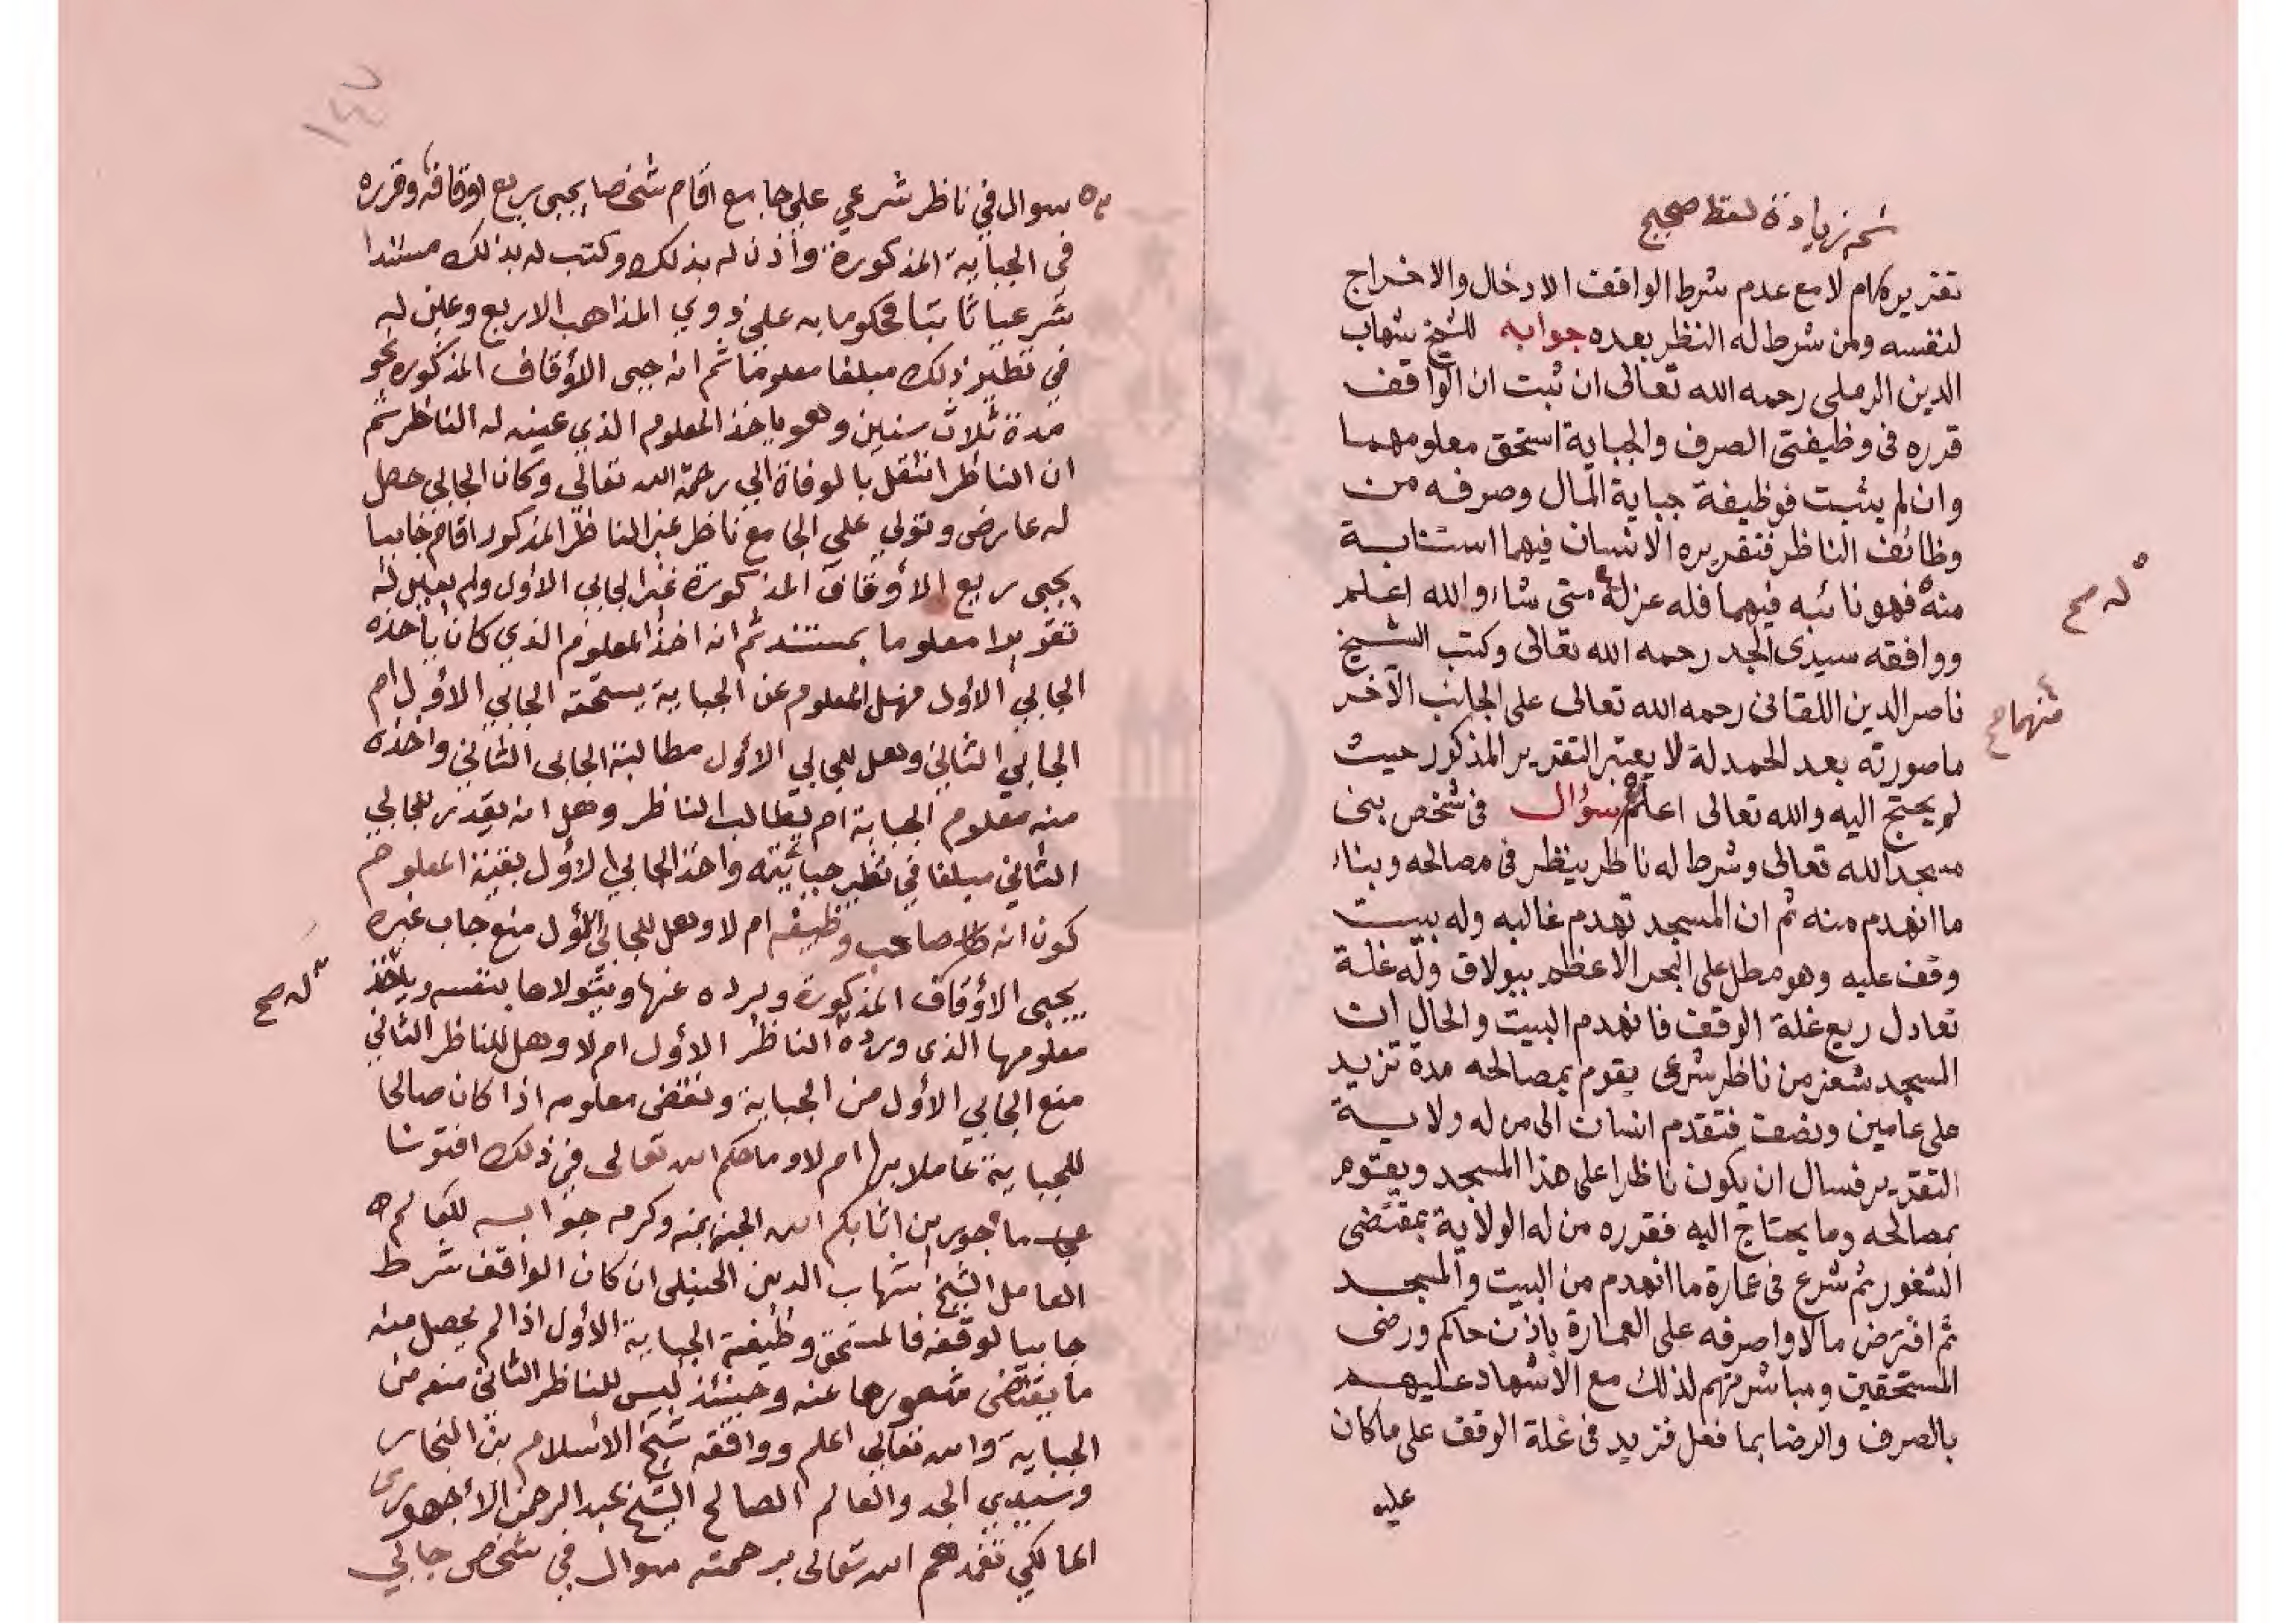 نسخه زيادة لفظ صحيح
تقريره كام لا مع عدم شرط الواقف الادخال والاخراج
لنفسه ولمن شرط له النظر بعده جوابه للشيخ شهاب
الدين الرملى رحمه الله تعالى ان ثبت ان الواقف
قرره فى وظيفتى الصرف والجباية استحق معلومهما
وان لم يثبت فوظيفة جباية المال وصرفه من
وظائف الناظر فتقريره الانسان فيهما استنابة
منه فهو نائبه فيهما فله عزله متى شاء والله اعلم
له صح
ووافقه سيدى الجد رحمه الله تعالى وكتب الشيخ
ناصر الدين اللقانى رحمه الله تعالى على الجانب الآخر
منهما صح
ما صورته بعد الحمدلة لا يعتبر التقرير المذكور حيث
لم يحتج اليه والله تعالى اعلم سؤال فى شخص بنى
مسجد الله تعالى وشرط له ناظر ينظر فى مصالحه وبناء
ما انهدم منه ثم ان المسجد تهدم غالبه وله بيت
وقف عليه وهو مطل على البحر الاعظم ببولاق وله غلة
تعادل ريع غلة الوقف فانهدم البيت والحال ان
المسجد شغر من ناظر شرعى يقوم بمصالحه مدة تزيد
على عامين ونصف فتقدم انسان الى من له ولاية
التقرير فسال ان يكون ناظرا على هذا المسجد ويقوم
بمصالحه وما يحتاج اليه فقرره من له الولاية بمقتضى
الشغور ثم شرع فى عمارة ما انهدم من البيت والمسجد
ثم اقترض مالا واصرفه على العمارة باذن حاكم ورضى
المستحقين ومباشرتهم لذلك مع الاشهاد عليهم
بالصرف والرضا بما فعل فتزيد فى غلة الوقف على ما كان
عليه
١٤٧
سوال في ناظر شرعي علي جامع اقام شخصا يجبى ريع اوقافه وقرره
فى الجباية المذكورة واذن له بذلك وكتب له بذلك مستندا
شرعيا ثابتا محكوما به على ذوي المذاهب الاربع وعين له
في نظير ذلك مبلغا معلوما ثم انه جبى الاوقاف المذكورة نحو
مدة ثلاث سنين وهو ياخذ المعلوم الذي عينه له الناظر ثم
ان الناظر انتقل بالوفاة الي رحمة الله تعالي وكان الجابي حصل
له عارض وتولي علي الجامع ناظر غير الناظر المذكور اقام جابيا
يجبى ريع الاوقاف المذكورة غير الجابي الاول ولم يعين له
تقريرا معلوما بمستند ثم انه اخذ المعلوم الذي كان ياخذه
الجابي الاول فهل المعلوم عن الجباية يستحقه الجابي الاول ام
الجابي الثاني وهل للجابي الاول مطالبة الجابى الثاني واخذه
منه معلوم الجباية ام يطالب الناظر وهل انه يقدر للجابي
الثاني مبلغا في نظير جبايته واخذ الجابي الاول بقية المعلوم
كون انه صاحب وظيفه ام لا وهل للجابي الاول منع جاب غيره
يجبى الاوقاف المذكورة ويرده عنها ويتولاها بنفسه وياخذ
له صح
معلومها الذى قرره الناظر الاول ام لا وهل للناظر الثاني
منع الجابي الاول من الجباية ونقض معلومه اذا كان صالحا
للجباية عاملا بها ام لا وما حكم الله تعالى في ذلك افتونا
ماجورين اثابكم الله الجنة بمنه وكرمه جوابه للعالم
العامل الشيخ شهاب الدين الحنبلى ان كان الواقف شرط
جابيا لوقفه فالمستحق وظيفة الجباية الاول اذا لم يحصل منه
ما يقتضى شغورها عنه وحينئذ ليس للناظر الثاني منعه من
الجباية والله تعالي اعلم ووافقه شيخ الاسلام بن النجار
وسيدي الجد والعالم الصالح الشيخ عبد الرحمن الاجهورى
المالكي تغمدهم الله تعالى برحمته سوال في شخص جابي